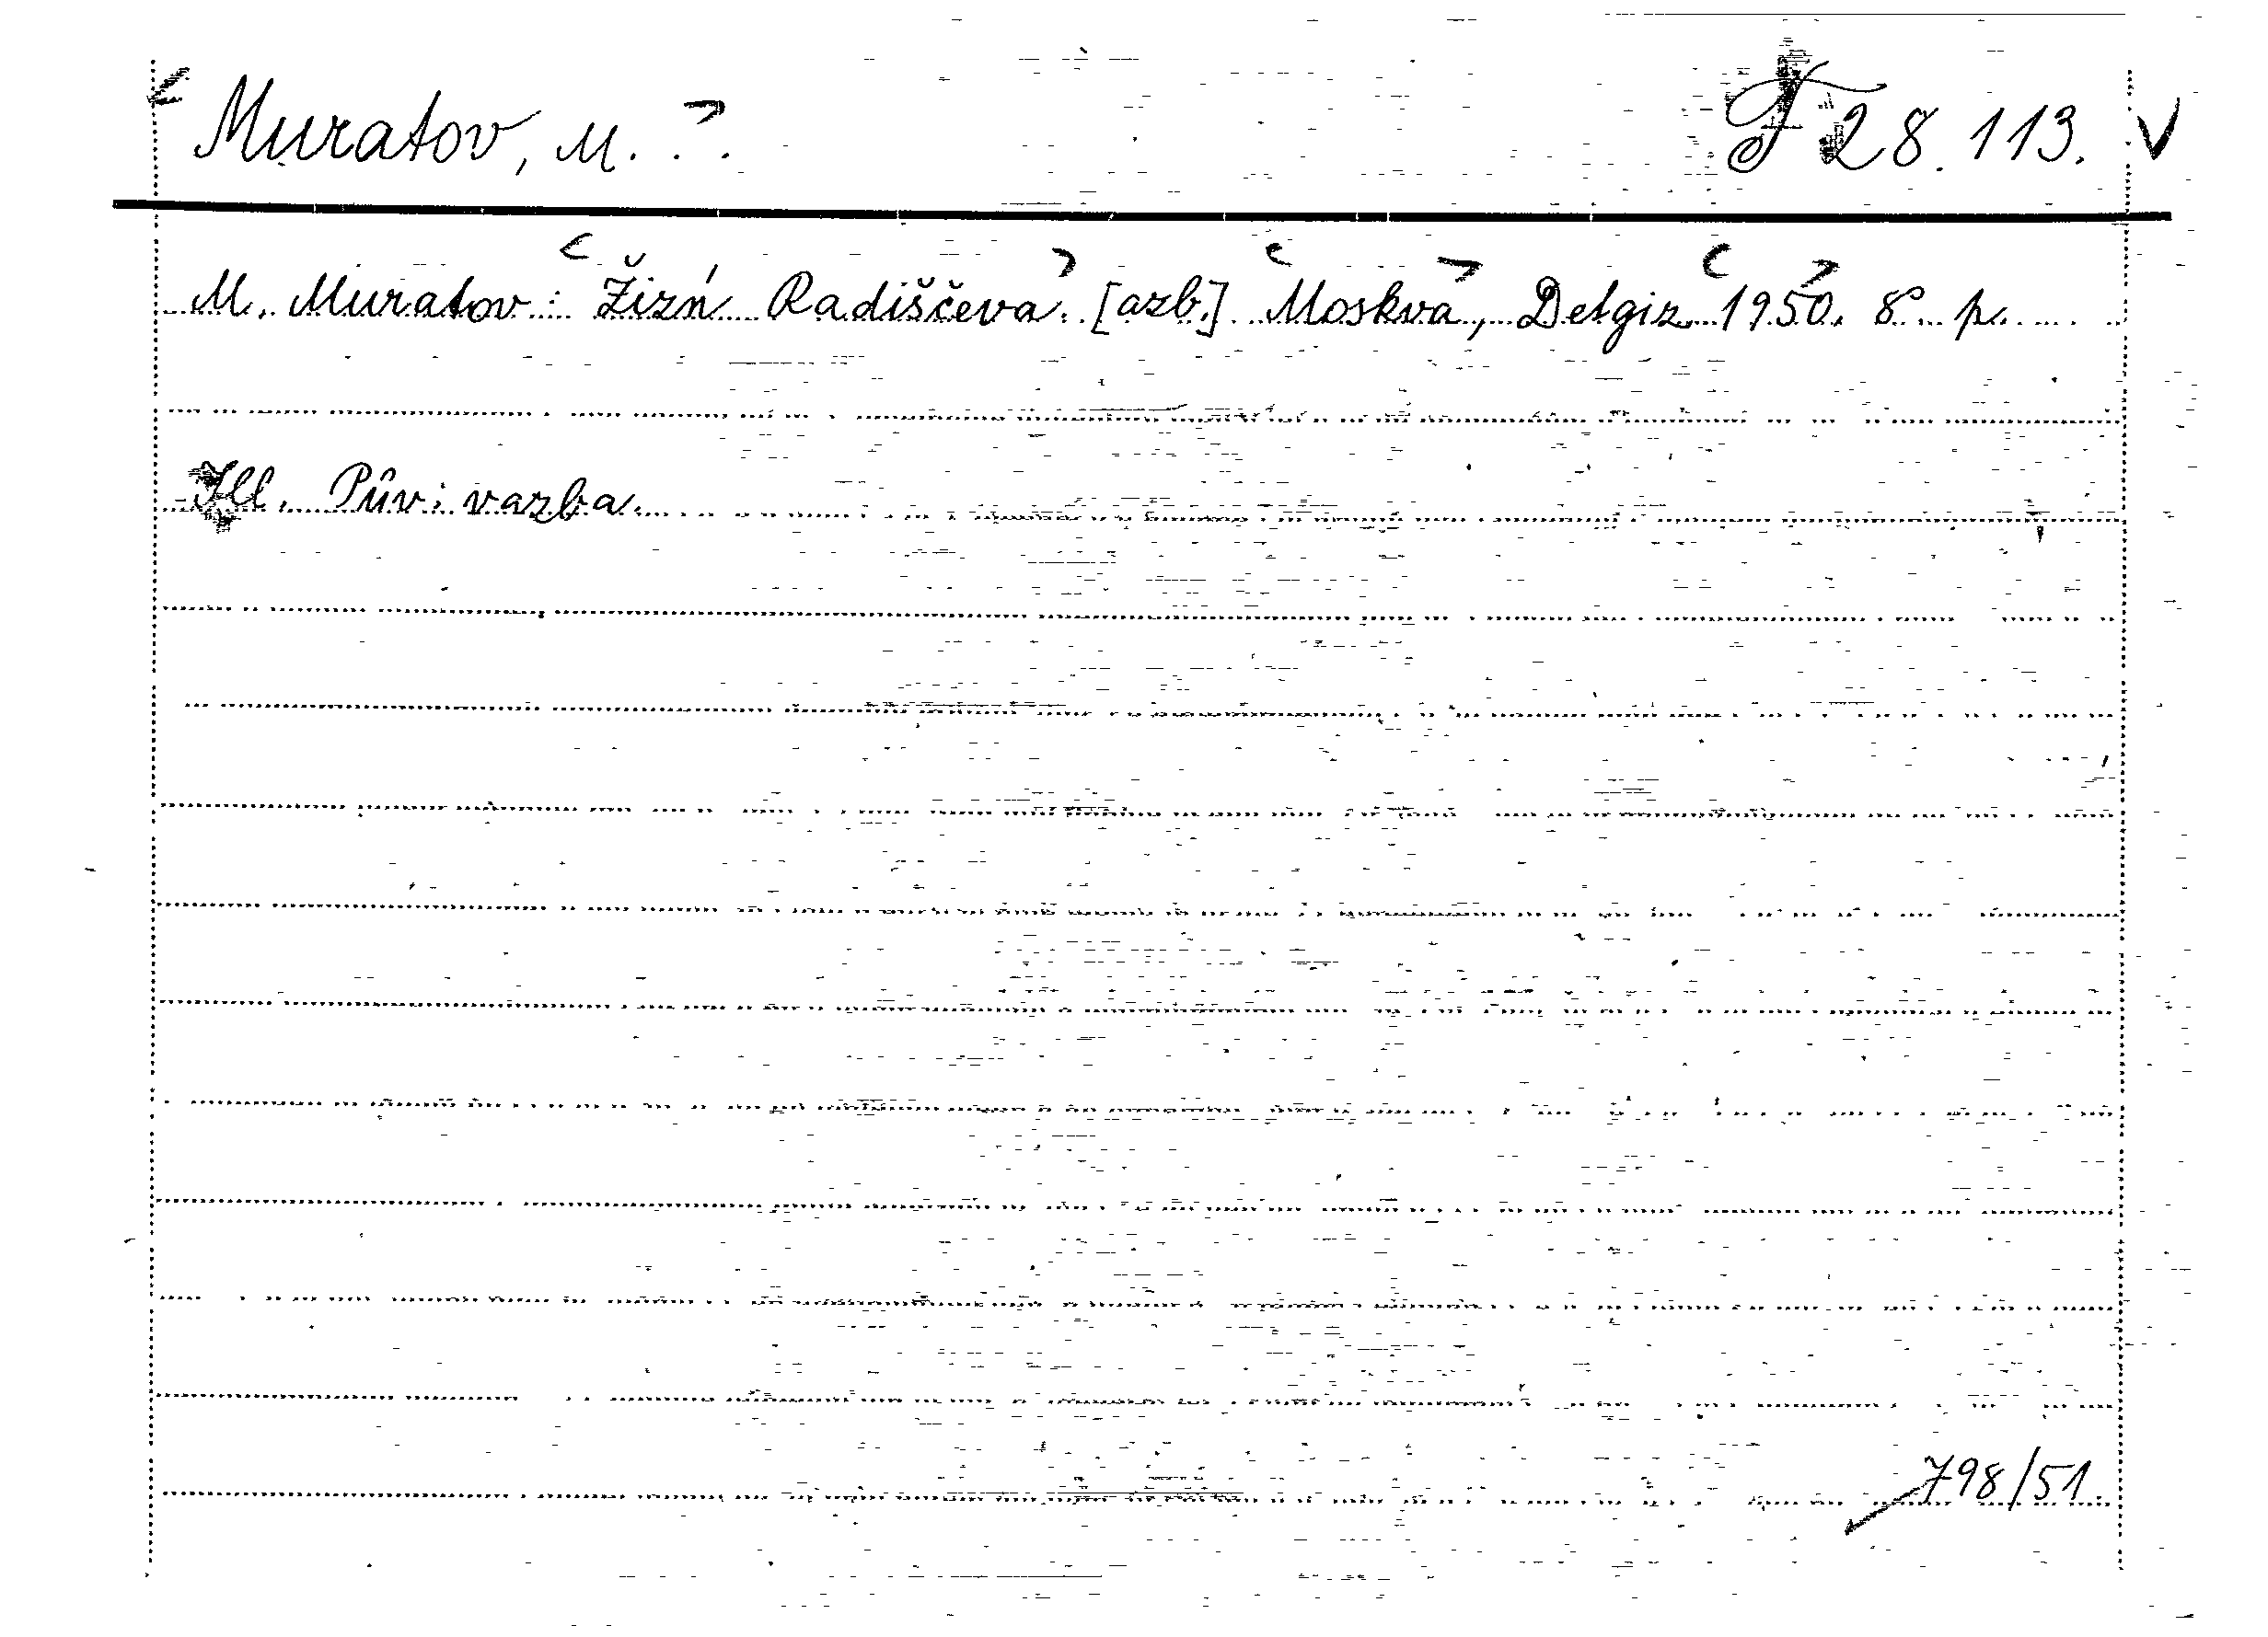 Muratov, M. . . F 28.113. V
M. Muratov: Žizń Radiščeva. [azb.] Moskva, Detgiz 1950. 8°. p.
Ill. Pův. vazba.
798/51.